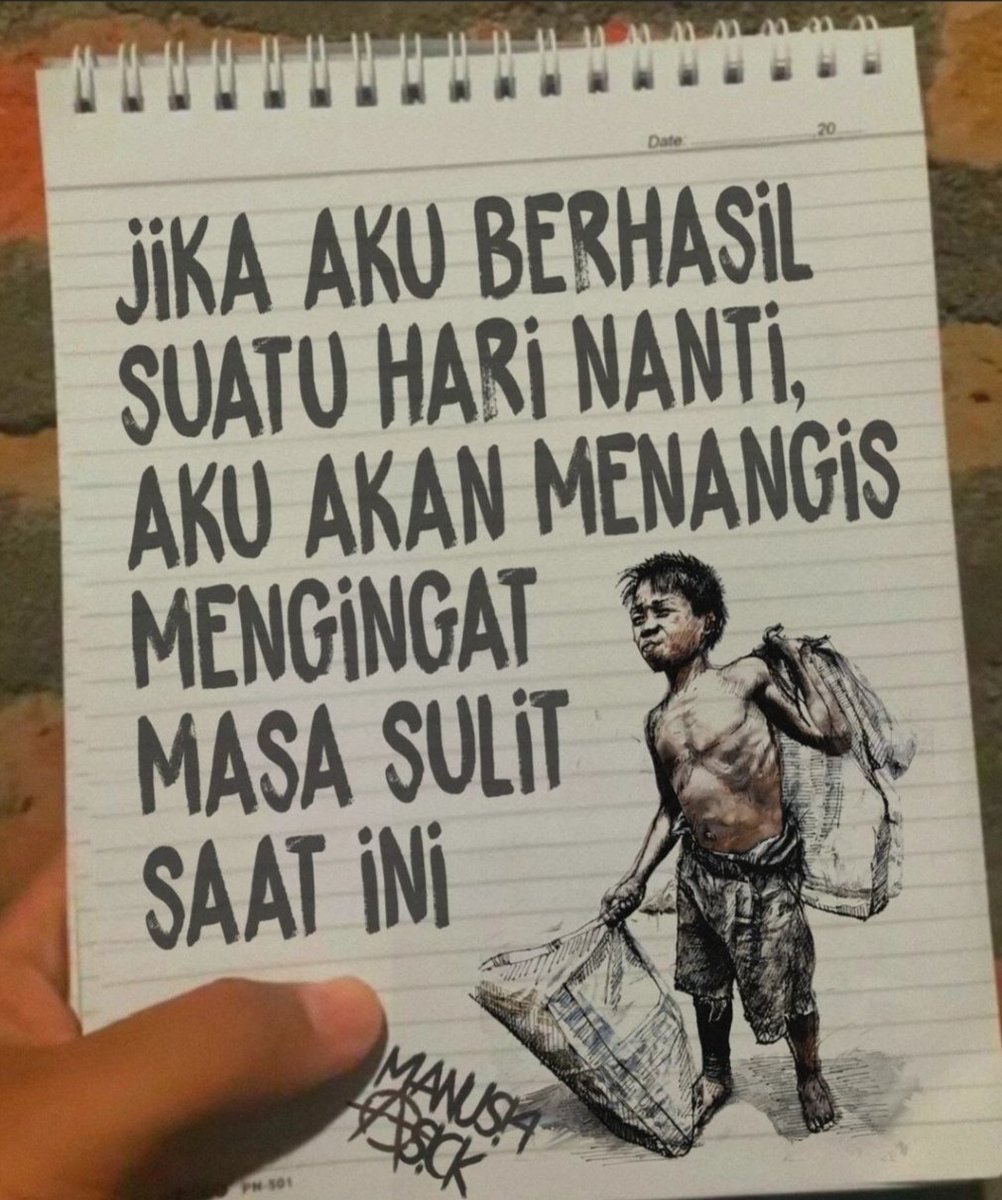 Date: 20
JIKA AKU BERHASIL
SUATU HARI NANTI,
AKU AKAN MENANGIS
MENGINGAT
MASA SULIT
SAAT INI
MANUSIA
ASICK
PN-501